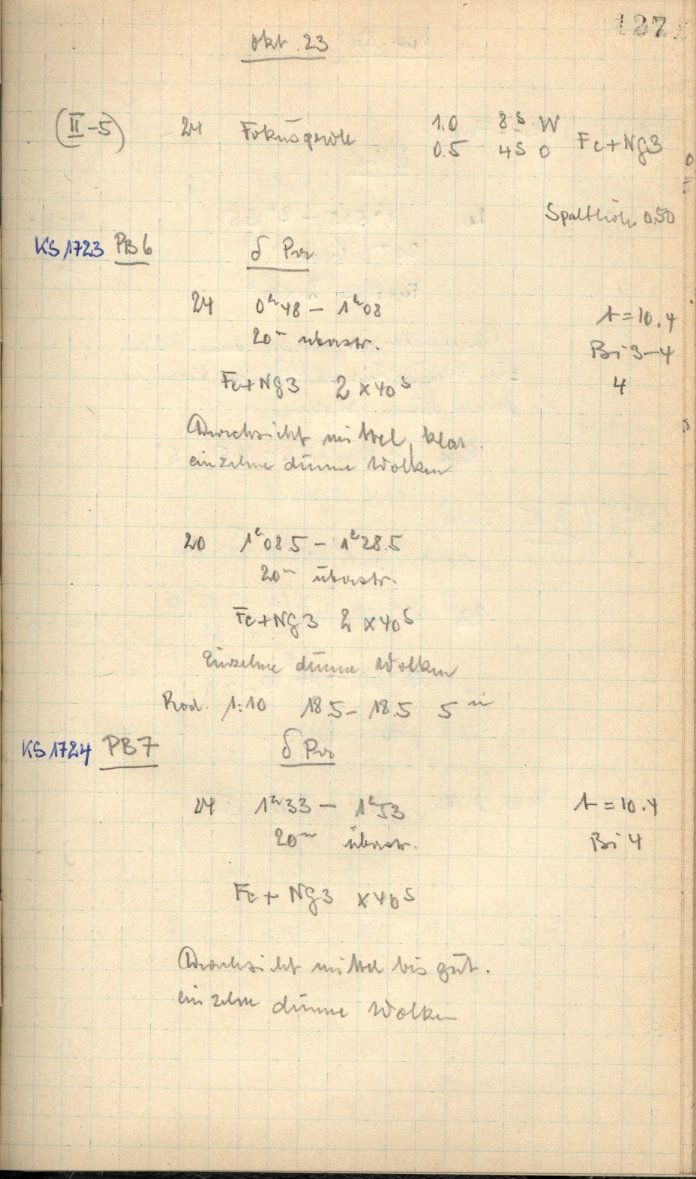 Okt. 23
137
(II-5) 24 1.0 8s W
0.5 4s O Fe+Ng3
Spalthöhe 0.50
KS 1723 PB6 δ Per
24 0h48 – 1h08 t=10.4
20m überstr. Bi 3-4
Fe+Ng3 2 x 40s 4
Durchsicht mittel, klar.
einzelne dünne Wolken
20 1h08.5 – 1h28.5
20m überstr.
Fe+Ng3 2 x 40s
Einzelne dünne Wolken
1:10 18.5 – 18.5 5m
KS 1724 PB7 δ Per
24 1h33 – 1h53 t=10.4
20m überstr. Bi 4
Fe + Ng3 x 40s
Durchsicht mittel bis gut.
einzelne dünne Wolken